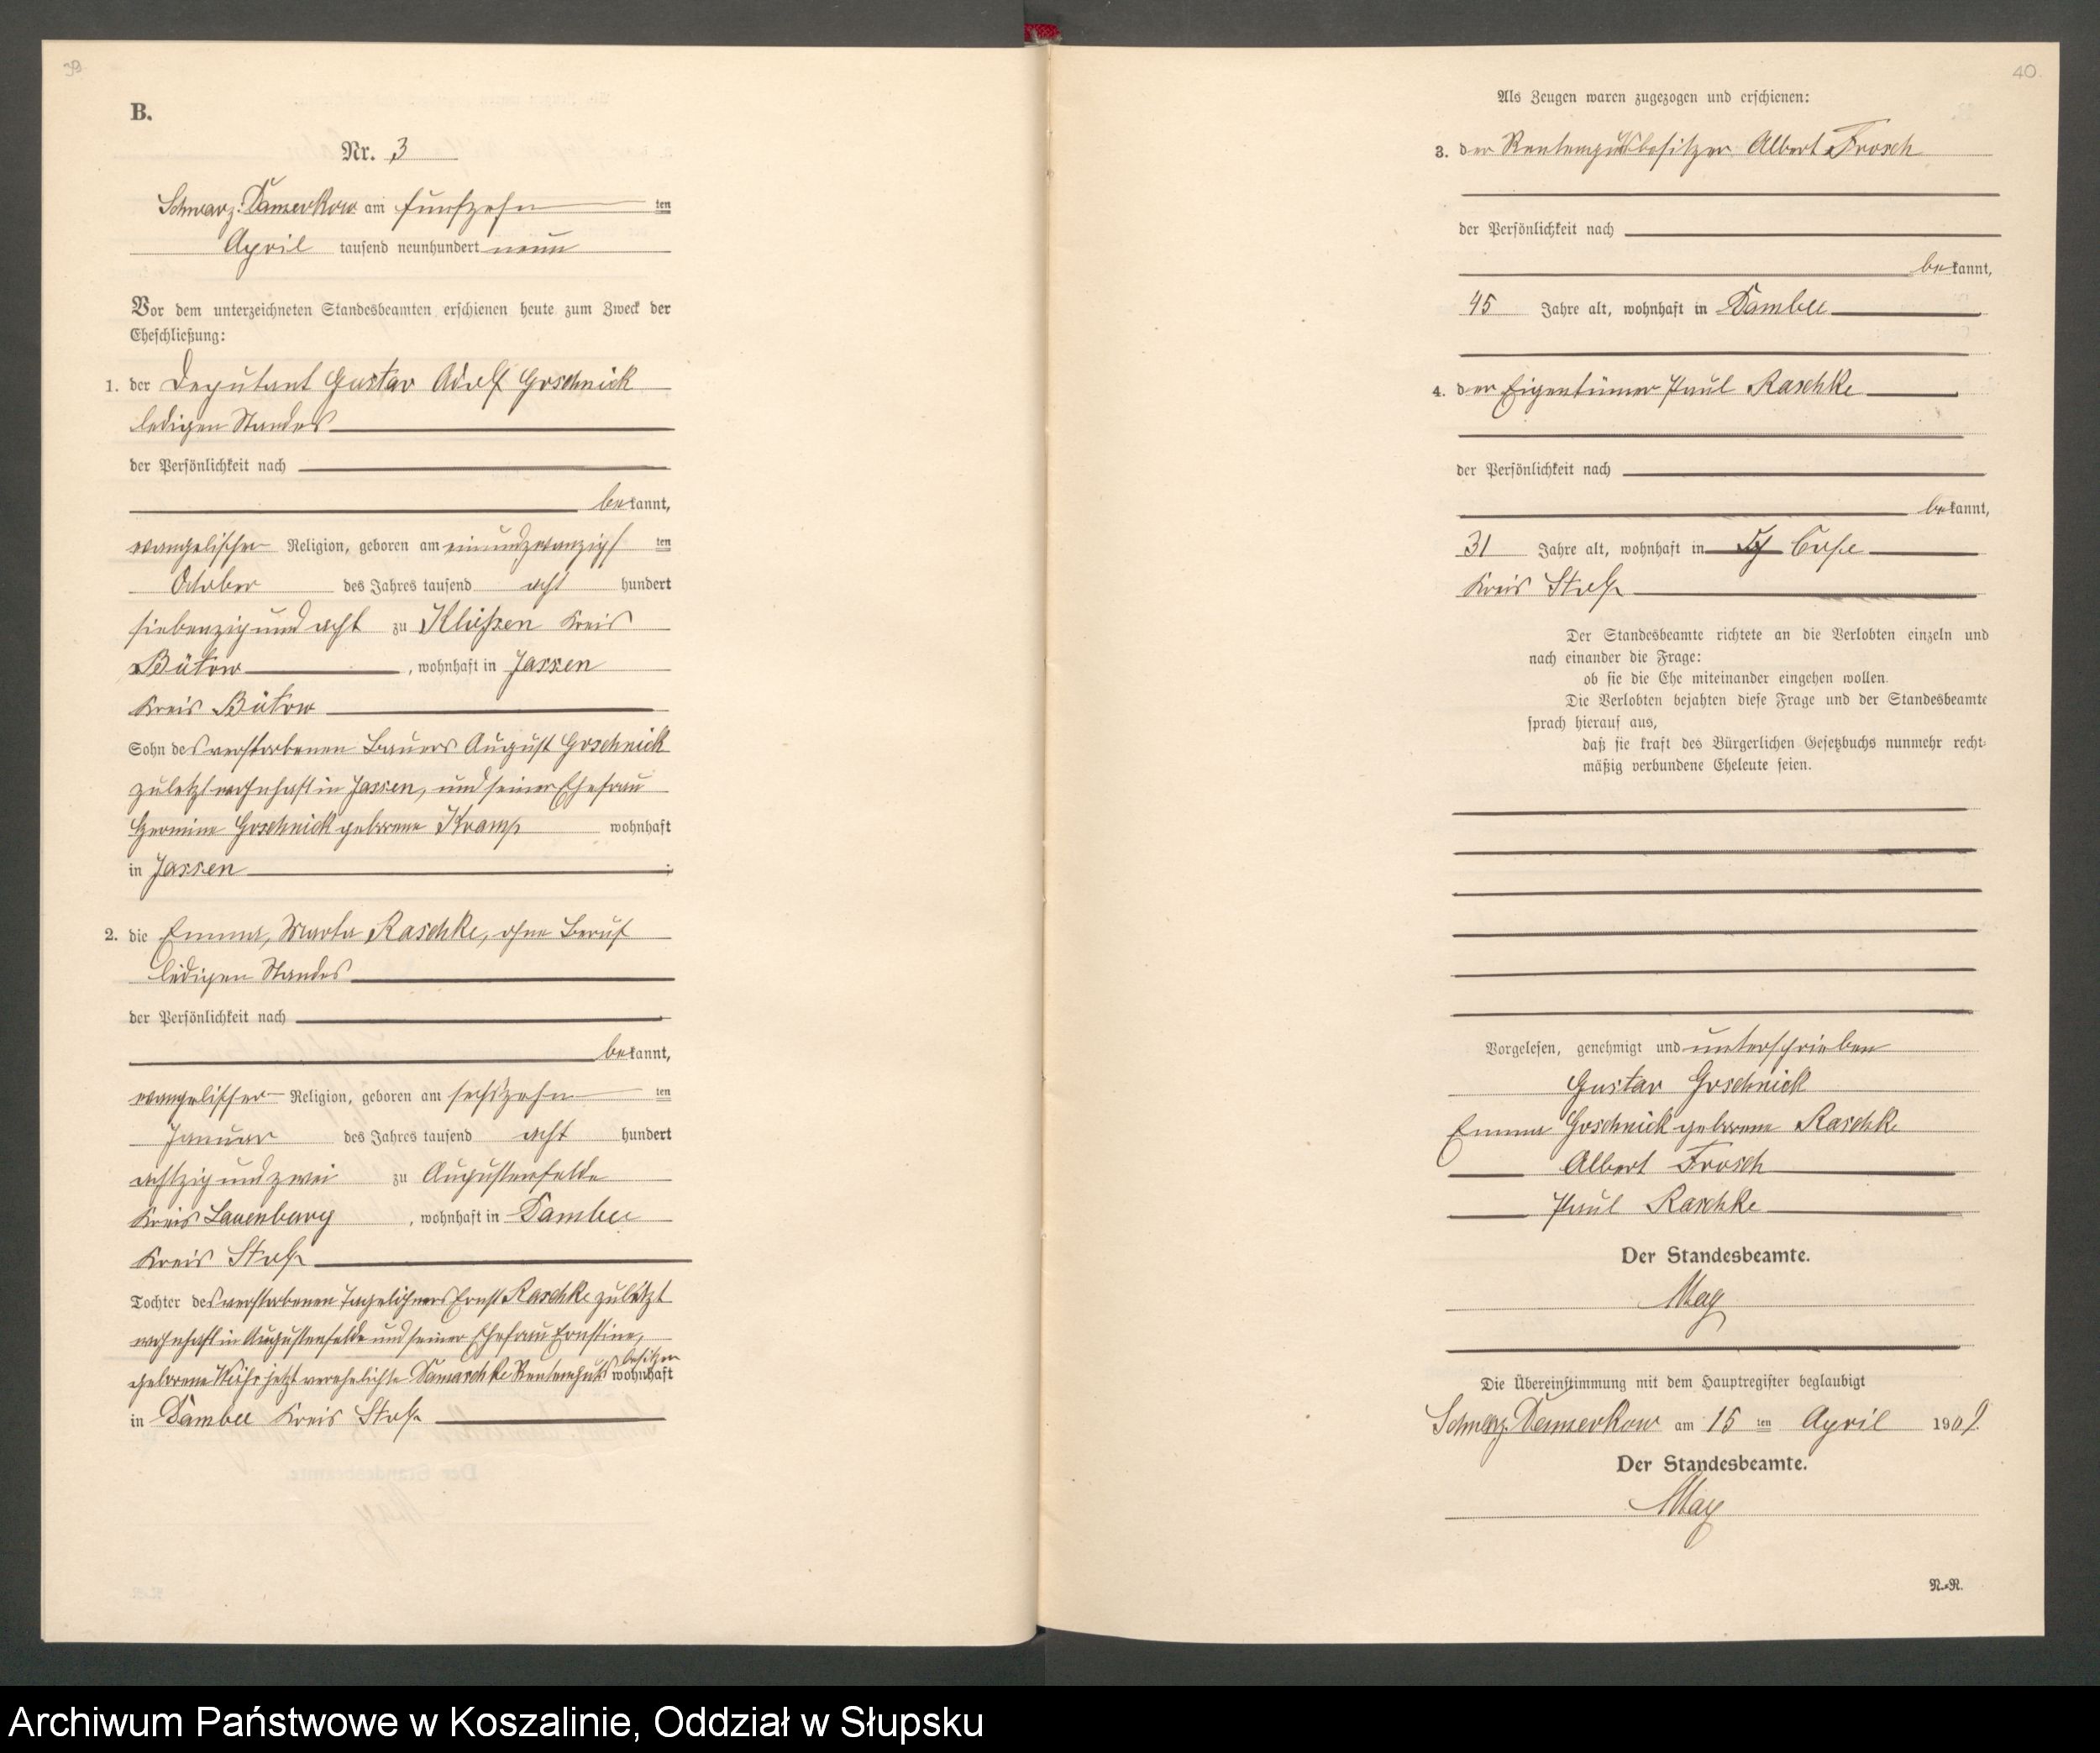 39.
B.
Nr. 3
Schwarz-Damerkow am fünfzehnten
April tausend neunhundert neun
Vor dem unterzeichneten Standesbeamten erschienen heute zum Zweck der
Eheschließung:
1. der Deputant Gustav Adolf Goschnick
ledigen Standes
der Persönlichkeit nach
bekannt,
evangelischer Religion, geboren am einundzwanzigsten
October des Jahres tausend acht hundert
siebenzig und acht zu Kließen Kreis
Bütow, wohnhaft in Jassen
Kreis Bütow
Sohn des verstorbenen Bauers August Goschnick
zuletzt wohnhaft in Jassen, und seiner Ehefrau
Hermine Goschnick geborene Kramp wohnhaft
in Jassen
2. die Emma, Marta Raschke, ohne Beruf
ledigen Standes
der Persönlichkeit nach
bekannt,
evangelischer Religion, geboren am sechszehnten
Januar des Jahres tausend acht hundert
achtzig und zwei zu Augustenfelde
Kreis Lauenburg, wohnhaft in Dambee
Kreis Stolp
Tochter des verstorbenen Tagelöhners Ernst Raschke zuletzt
wohnhaft in Augustenfelde und seiner Ehefrau Ernstine,
geborene jetzt verehelichte Damaschke Rentengutsbesitzer wohnhaft
in Dambee Kreis Stolp
40.
Als Zeugen waren zugezogen und erschienen:
3. der Rentengutsbesitzer Albert Frosch
der Persönlichkeit nach
bekannt,
45 Jahre alt, wohnhaft in Dambee
4. der Eigentümer Paul Raschke
der Persönlichkeit nach
bekannt,
31 Jahre alt, wohnhaft in
Kreis Stolp
Der Standesbeamte richtete an die Verlobten einzeln und
nach einander die Frage:
ob sie die Ehe miteinander eingehen wollen.
Die Verlobten bejahten diese Frage und der Standesbeamte
sprach hierauf aus,
daß sie kraft des Bürgerlichen Gesetzbuchs nunmehr recht-
mäßig verbundene Eheleute seien.
Vorgelesen, genehmigt und unterschrieben
Gustav Goschnick
Emma Goschnick geborene Raschke
Albert Frosch
Paul Raschke
Der Standesbeamte.
May
Die Übereinstimmung mit dem Hauptregister beglaubigt
Schwarz-Damerkow am 15 ten April 1909.
Der Standesbeamte.
May
N.-R.
Archiwum Państwowe w Koszalinie, Oddział w Słupsku